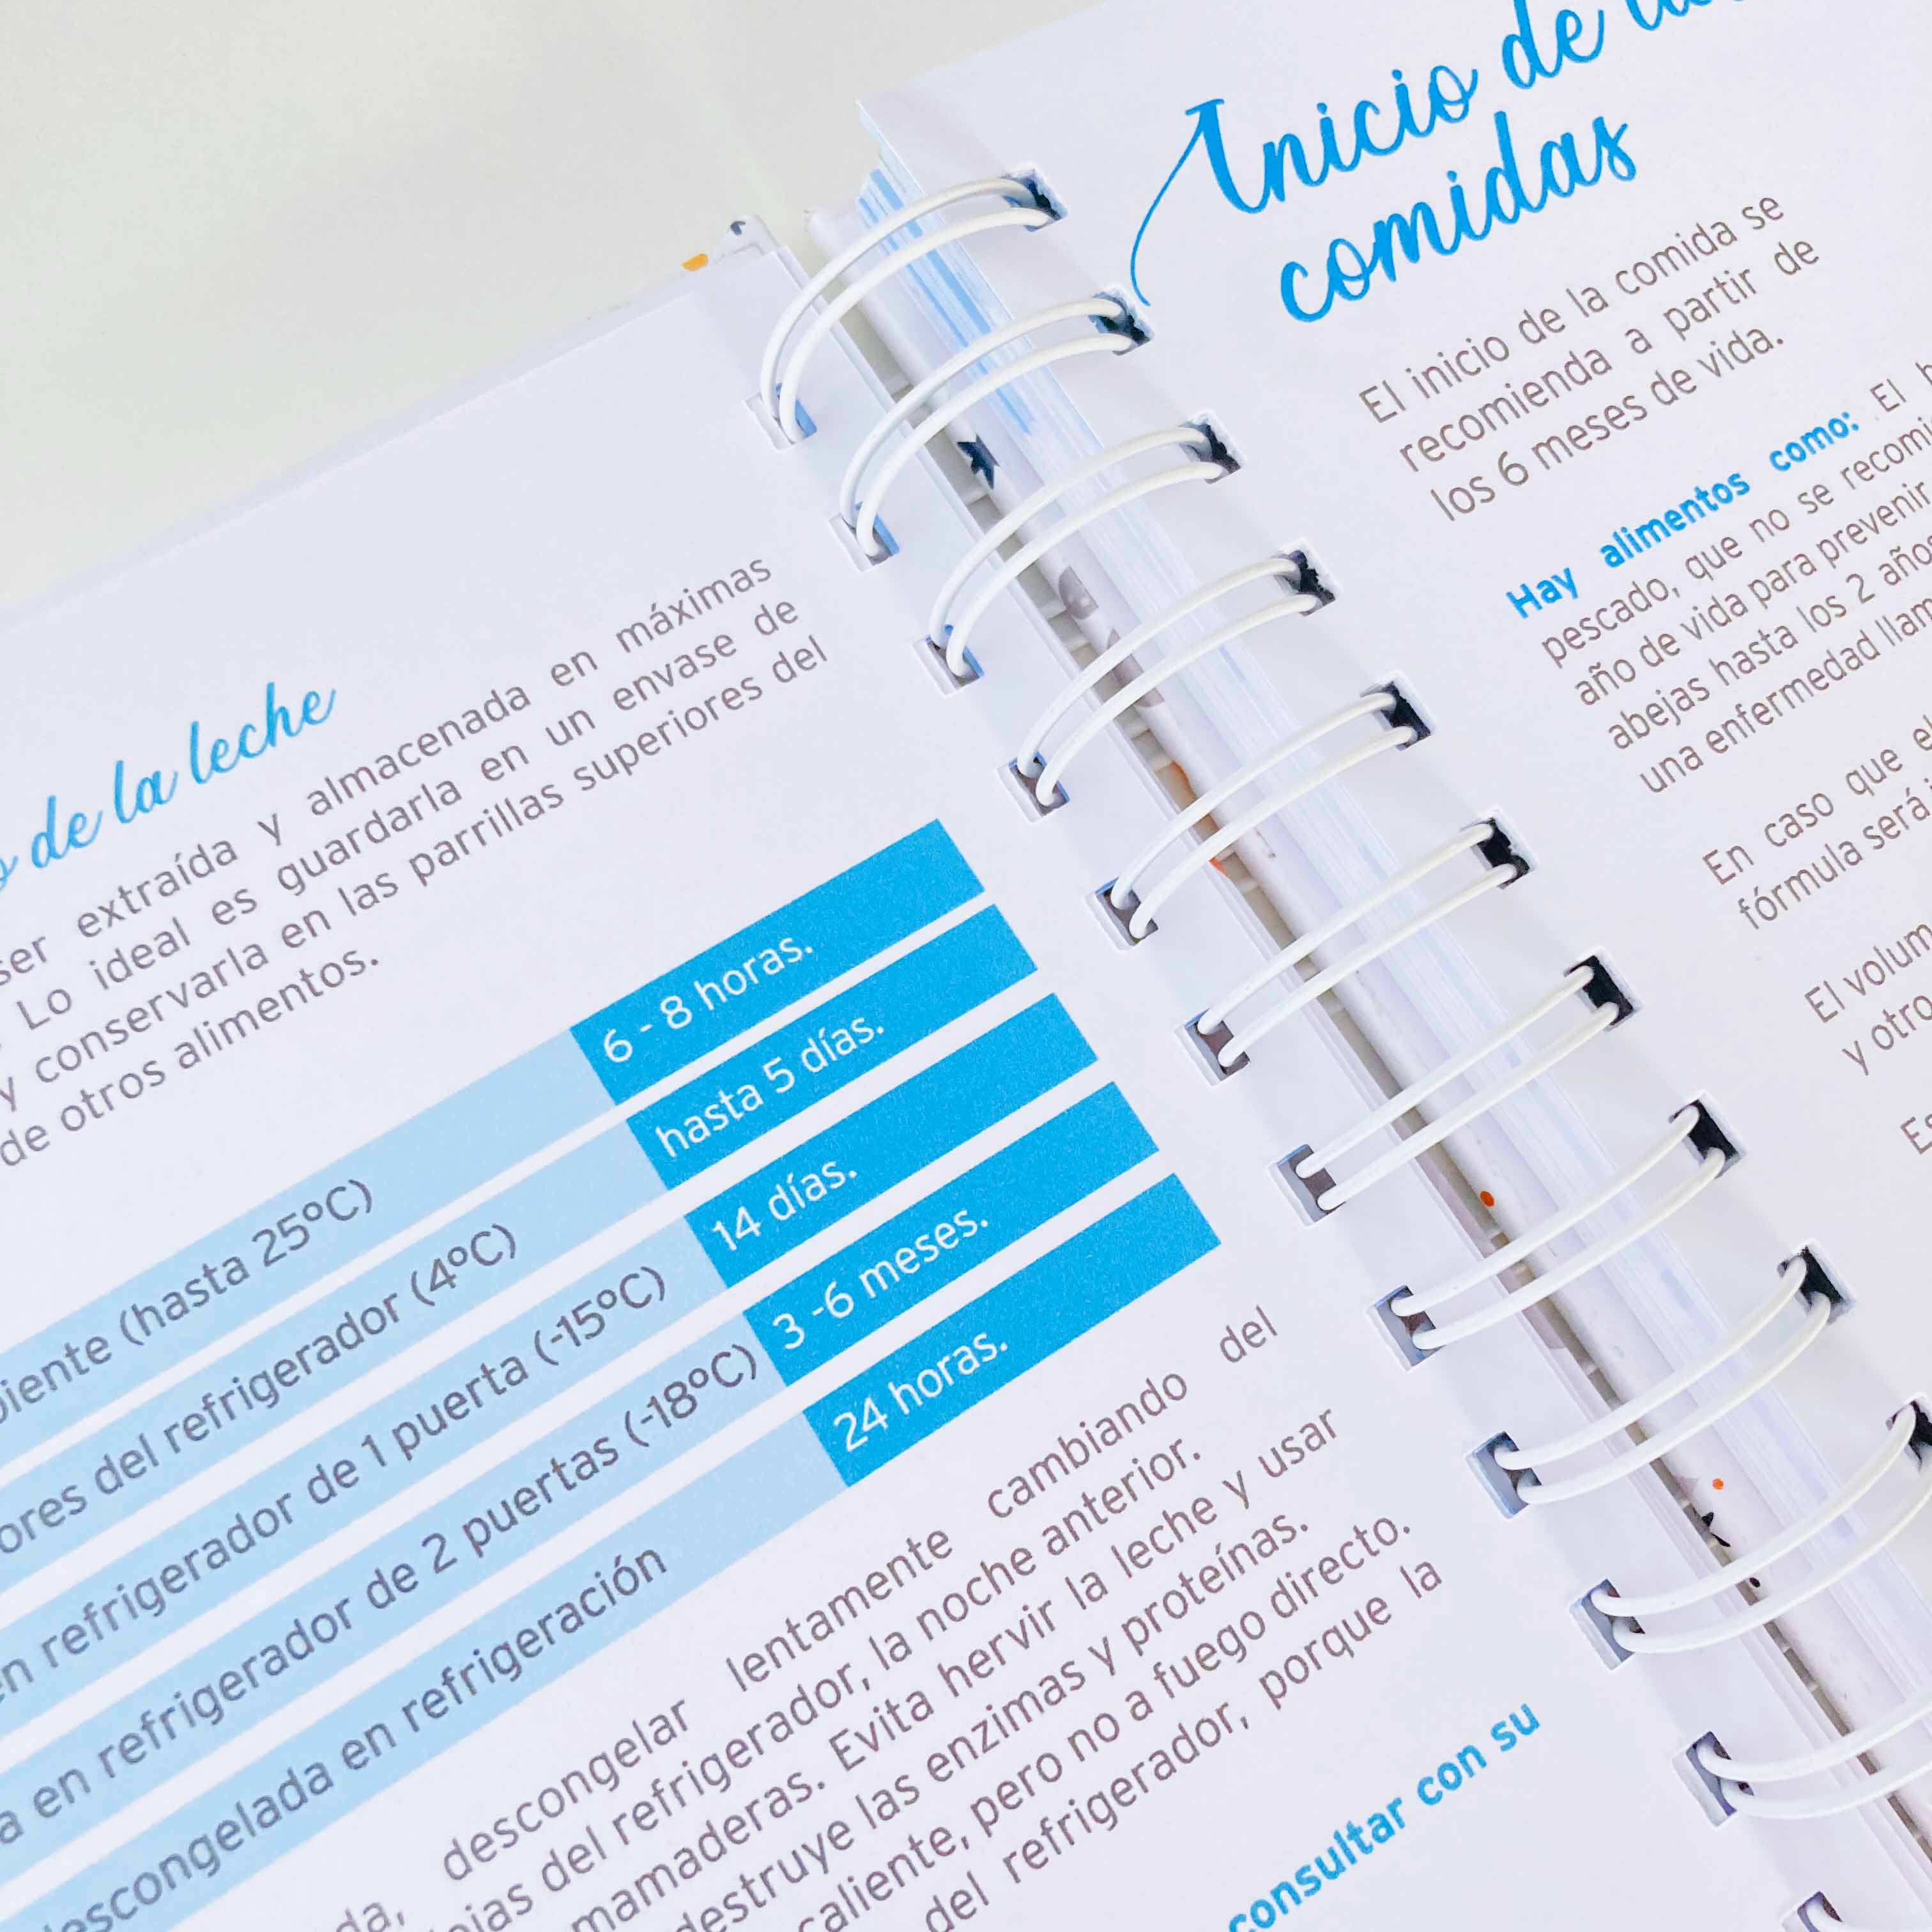 de la leche
ser extraída y almacenada en máximas
Lo ideal es guardarla en un envase de
y conservarla en las parrillas superiores del
de otros alimentos.
(hasta 25ºC) 6 - 8 horas.
del refrigerador (4ºC) hasta 5 días.
en refrigerador de 1 puerta (-15ºC) 14 días.
a en refrigerador de 2 puertas (-18ºC) 3 -6 meses.
descongelada en refrigeración 24 horas.
descongelar lentamente cambiando del
del refrigerador, la noche anterior.
mamaderas. Evita hervir la leche y usar
destruye las enzimas y proteínas.
caliente, pero no a fuego directo.
del refrigerador, porque la
consultar con su
Inicio de
comidas
El inicio de la comida se
recomienda a partir de
los 6 meses de vida.
Hay alimentos como: El
pescado, que no se
año de vida para prevenir
abejas hasta los 2
una enfermedad
En caso que
fórmula será
El
y